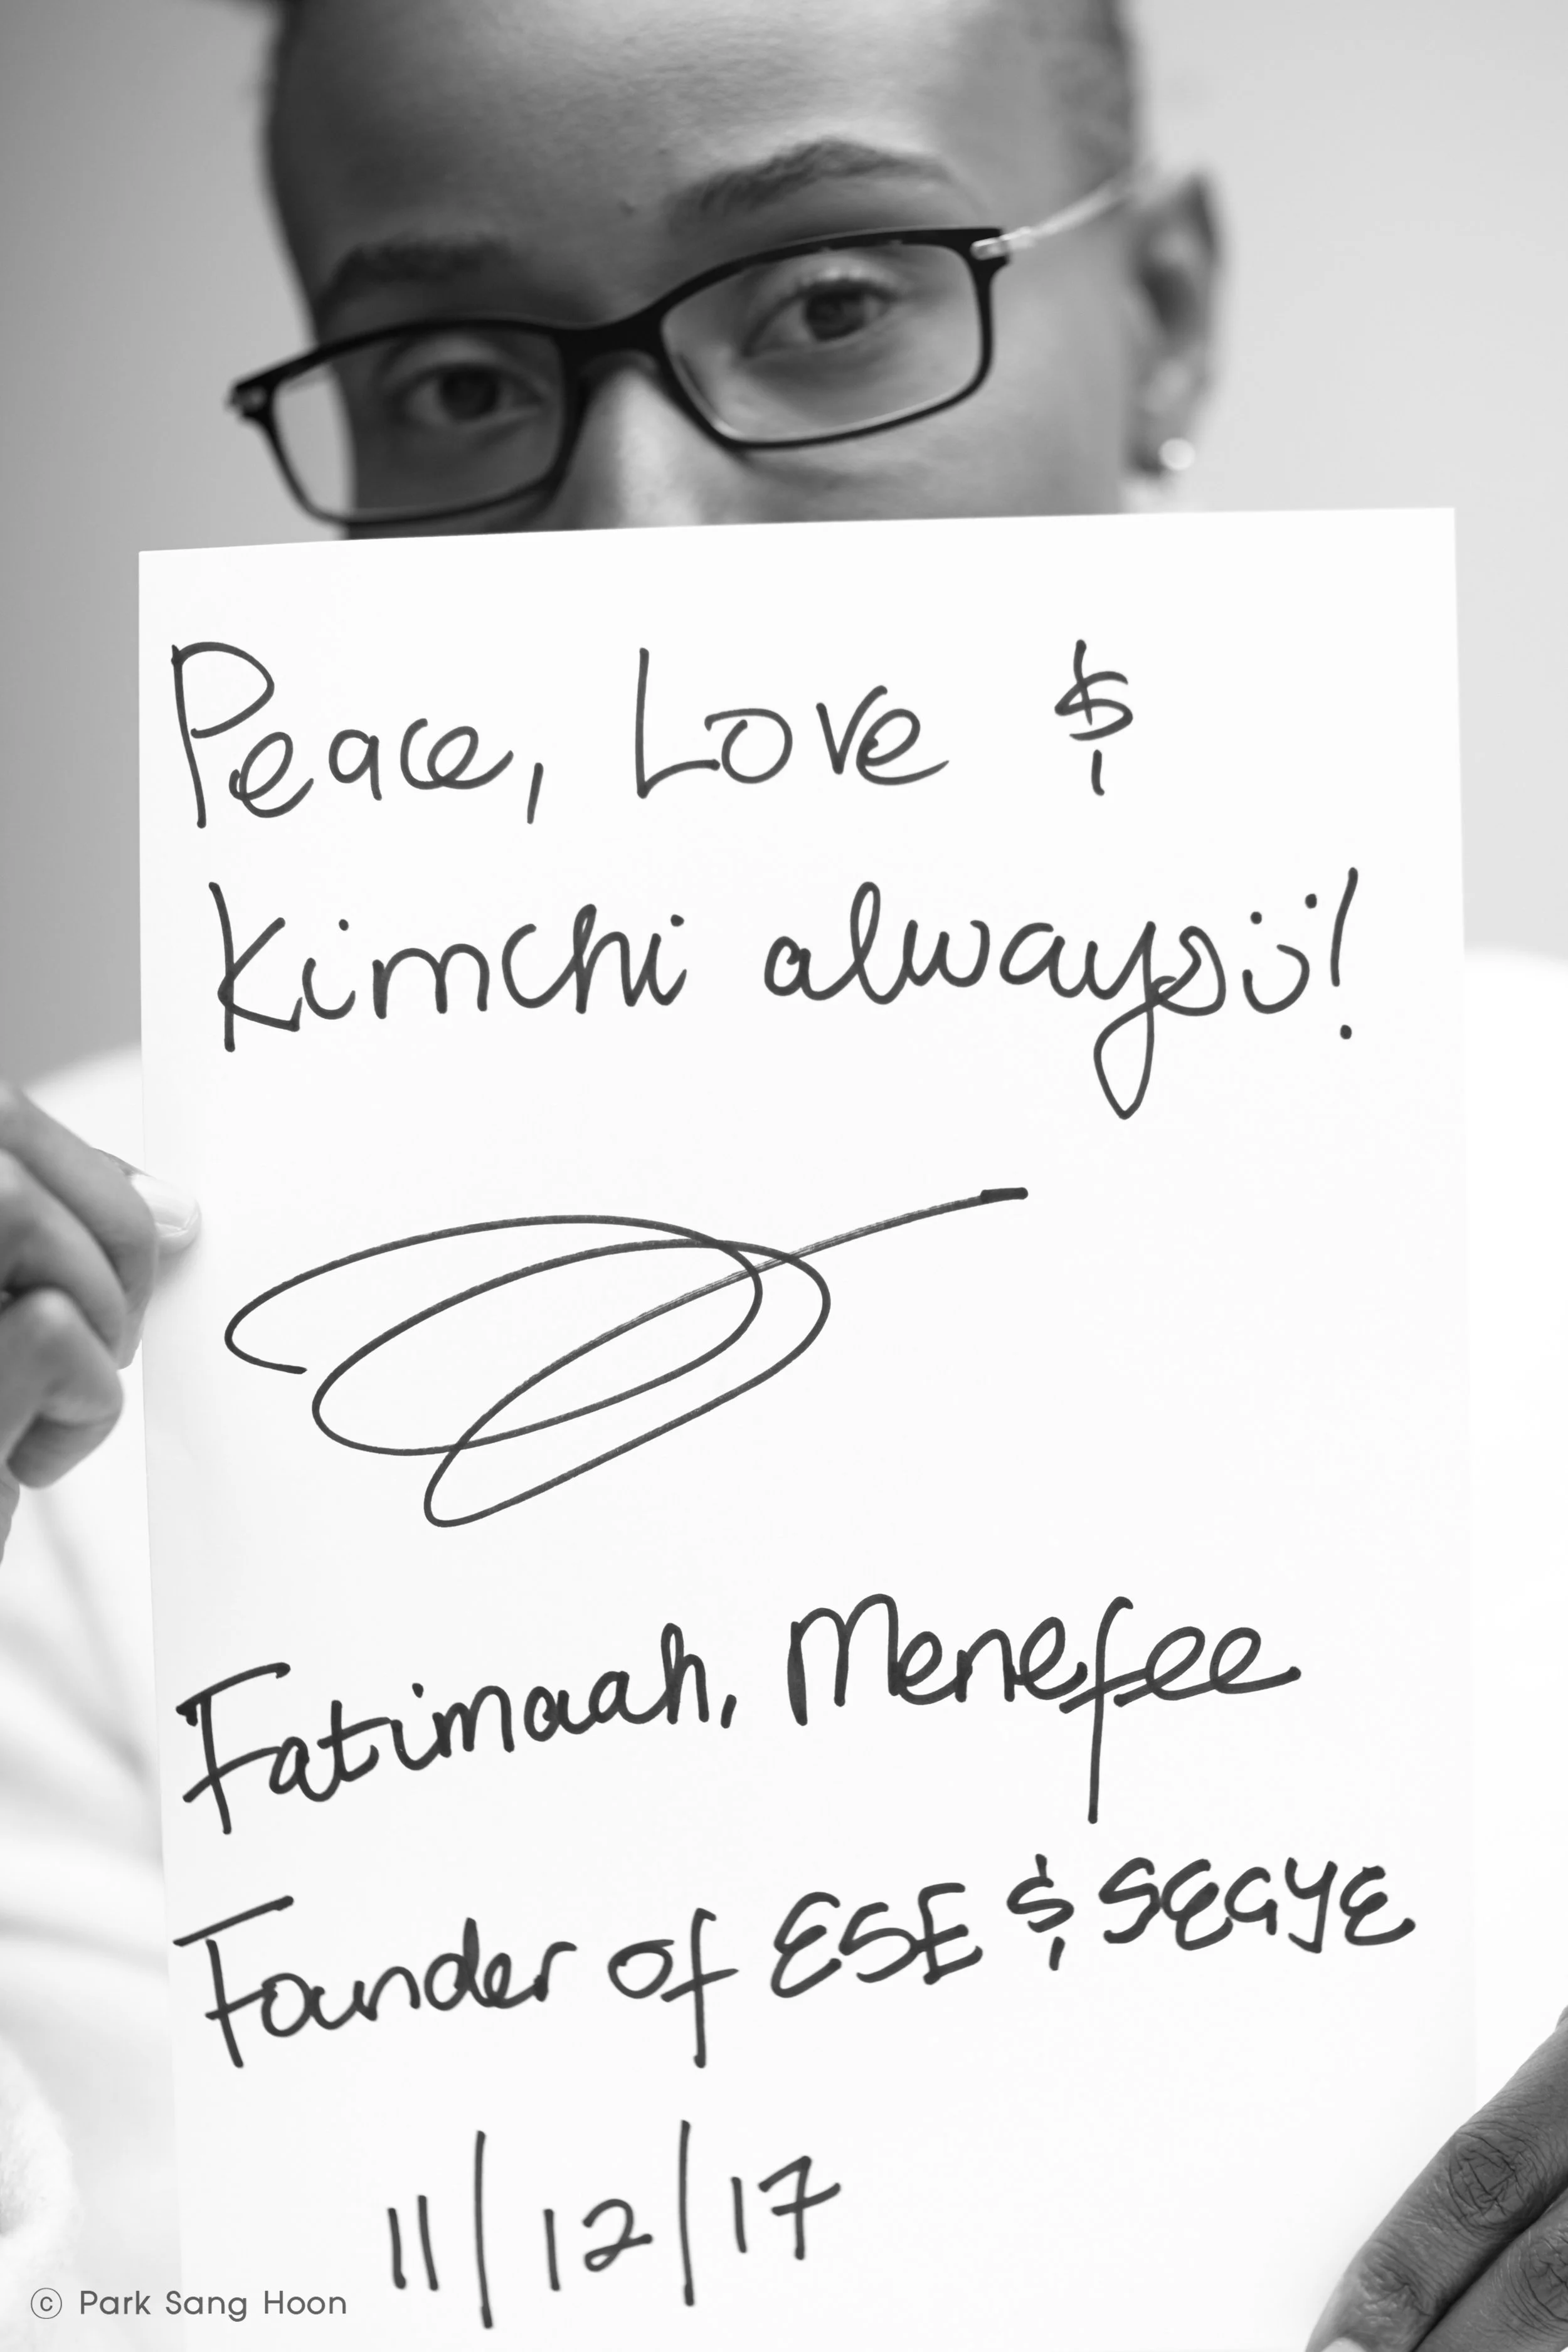 Peace, Love &
Kimchi always ü!
Fatimaah, Menefee
Founder of ESE & SEGYE
11/12/17
© Park Sang Hoon